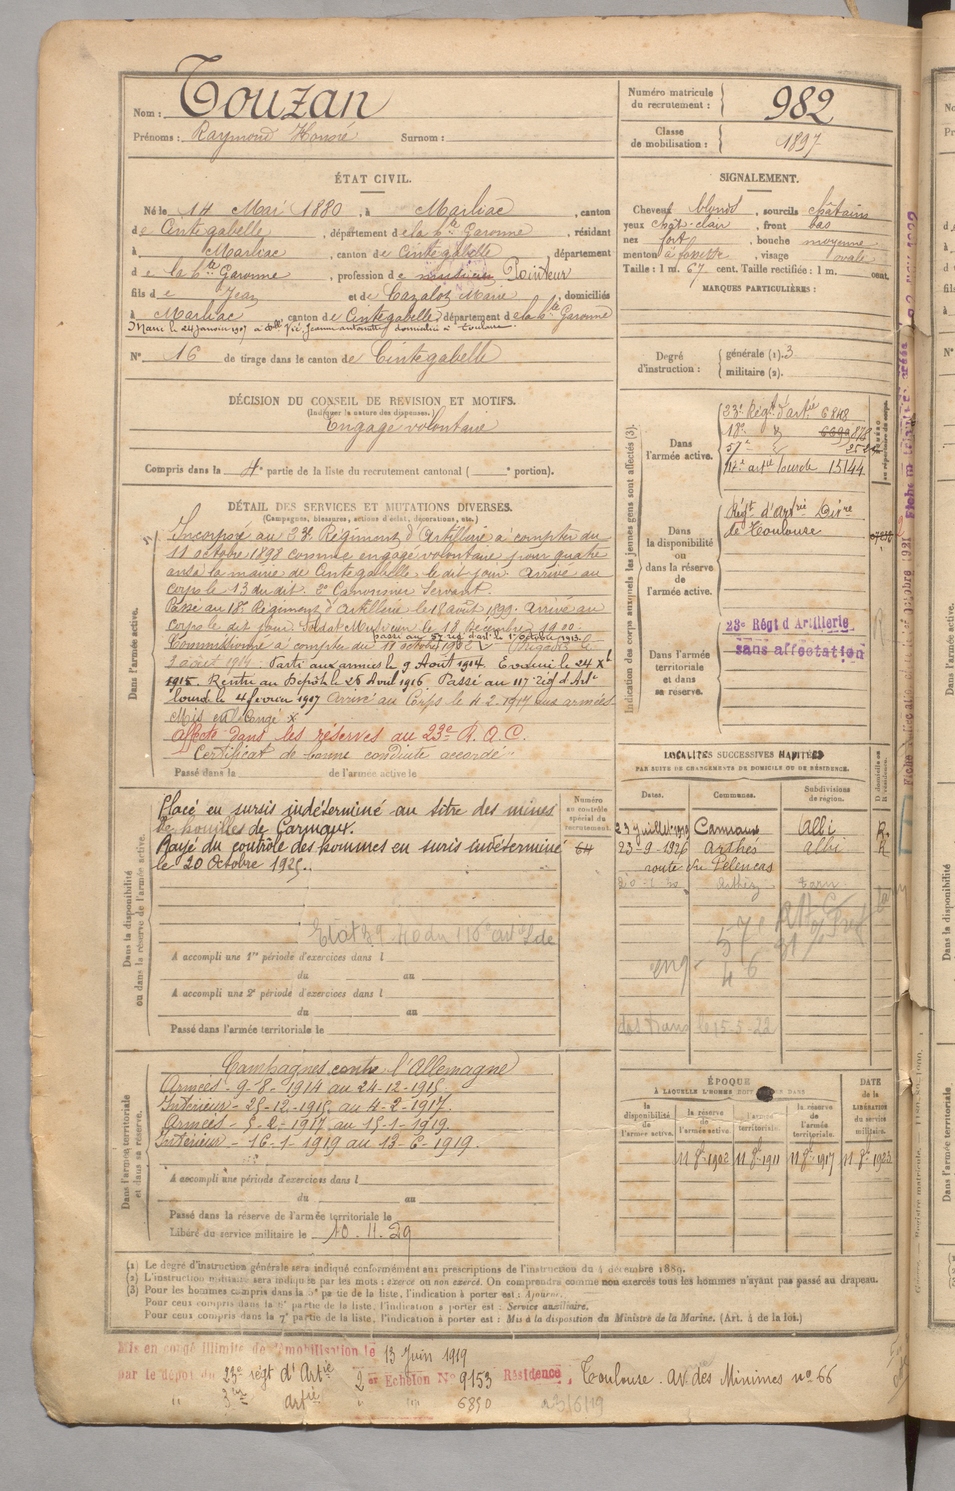 Nom : Touzan
Prénoms : Raymond Honoré Surnom :
Numéro matricule du recrutement : 982
Classe de mobilisation : 1897
ÉTAT CIVIL.
Né le 14 Mai 1880, à Marliac, canton
de Cintegabelle, département de la Hte Garonne, résidant
à Marliac, canton de Cintegabelle, département
de la Hte Garonne, profession de musicien Pointeur
fils de Jean et de Cazalot Marie, domiciliés
à Marliac, canton de Cintegabelle, département de la Hte Garonne
Marié le 24 janvier 1907 à domiciliée à Toulouse.
N° 16 de tirage dans le canton de Cintegabelle
SIGNALEMENT.
Cheveux blond, sourcils châtains
yeux chât. clair, front bas
nez fort, bouche moyenne
menton à fossette, visage ovale
Taille : 1 m. 67 cent. Taille rectifiée : 1 m. cent.
MARQUES PARTICULIÈRES :
Degré d'instruction : générale (1). 3
militaire (2).
DÉCISION DU CONSEIL DE RÉVISION ET MOTIFS.
(Indiquer la nature des dispenses.)
Engagé volontaire
Compris dans la 4e partie de la liste du recrutement cantonal ( e portion).
DÉTAIL DES SERVICES ET MUTATIONS DIVERSES.
(Campagnes, blessures, actions d'éclat, décorations, etc.)
Dans l'armée active.
Incorporé au 23e Régiment d'Artillerie à compter du
11 octobre 1898 comme engagé volontaire pour quatre
ans à la mairie de Cintegabelle, le dit jour. Arrivé au
corps le 13 du dit. 2e Canonnier Servant.
Passé au 18e Régiment d'Artillerie le 18 août 1899. Arrivé au
corps le dit jour. Soldat Musicien le 18 Décembre 1900.
passé au 57 rég d'art. le 1er octobre 1913.
Commissionné à compter du 11 octobre 1902
2 août 1914. Parti aux armées le 9 Août 1914. Evacué le 24 Xbre
1915. Rentré au Dépôt le 26 Avril 1916 Passé au 117 Rég d'Artie
lourde le 4 février 1917 Arrivé au Corps le 4-2-1917 aux armées
Mis en congé X
affecté dans les réserves au 23e R. A. C.
Certificat de bonne conduite accordé
Passé dans la de l'armée active le
Indication des corps auxquels les jeunes gens sont affectés (3).
Dans l'armée active.
23e Régt d'artie 6848
18e
57e
117e artie lourde 15144
Dans la disponibilité ou dans la réserve de l'armée active.
Régt d'Artrie
de Toulouse
Dans l'armée territoriale et dans sa réserve.
23e Régt d'Artillerie
sans affectation
Dans la disponibilité ou dans la réserve de l'armée active.
Placé en sursis indéterminé au titre des mines
de houilles de Carmaux.
Rayé du contrôle des hommes en sursis indéterminé
le 20 Octobre 1925.
Numéro au contrôle spécial du recrutement.
64
A accompli une 1re période d'exercices dans l
du au
A accompli une 2e période d'exercices dans l
du au
Passé dans l'armée territoriale le
LOCALITÉS SUCCESSIVES HABITÉES
PAR SUITE DE CHANGEMENTS DE DOMICILE OU DE RÉSIDENCE.
Dates. Communes. Subdivisions de région. D domicile ou R résidence.
23 juillet 1919 Carmaux Albi R
23-9-1926 Arthès albi R
route de Pelencas
Arthès Tarn
57e
le 15-5-22
Dans l'armée territoriale et dans sa réserve.
Campagnes contre l'Allemagne
Armées - 9-8-1914 au 24-12-1915.
Intérieur - 25-12-1915 au 4-2-1917.
Armées - 5-2-1917 au 15-1-1919.
Intérieur - 16-1-1919 au 13-6-1919.
A accompli une période d'exercices dans l
du au
Passé dans la réserve de l'armée territoriale le
Libéré du service militaire le 10.11.29
ÉPOQUE
À LAQUELLE L'HOMME DOIT PASSER DANS
la disponibilité de l'armée active. la réserve de l'armée active. l'armée territoriale. la réserve de l'armée territoriale.
DATE de la LIBÉRATION du service militaire.
11 8bre 1902 11 8bre 1911 11 8bre 1917 11 8bre 1923
(1) Le degré d'instruction générale sera indiqué conformément aux prescriptions de l'instruction du 4 décembre 1889.
(2) L'instruction militaire sera indiquée par les mots : exercé ou non exercé. On comprendra comme non exercés tous les hommes n'ayant pas passé au drapeau.
(3) Pour les hommes compris dans la 5e partie de la liste, l'indication à porter est : Ajourné.
Pour ceux compris dans la 6e partie de la liste, l'indication à porter est : Service auxiliaire.
Pour ceux compris dans la 7e partie de la liste, l'indication à porter est : Mis à la disposition du Ministre de la Marine. (Art. 4 de la loi.)
Mis en congé illimité de démobilisation le 13 Juin 1919
par le dépôt du 23e régt d'Artie 2e Echelon N° 9153 Résidence, Toulouse. av. des Minimes no 66
artie 6890